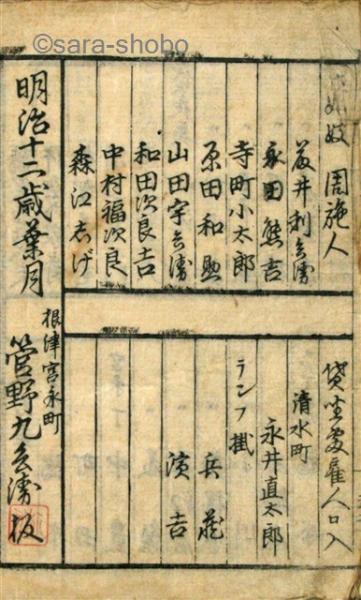 ©sara-shobo
芸妓 周施人
荻井利兵衛
永田熊吉
寺町小太郎
原田和助
山田宇兵衛
和田次良吉
中村福次良
森江志げ
貸坐敷雇人口入
清水町
永井直太郎
ランプ掛
兵蔵
演吉
明治十二歳葉月
根津宮永町
管野九兵衛板